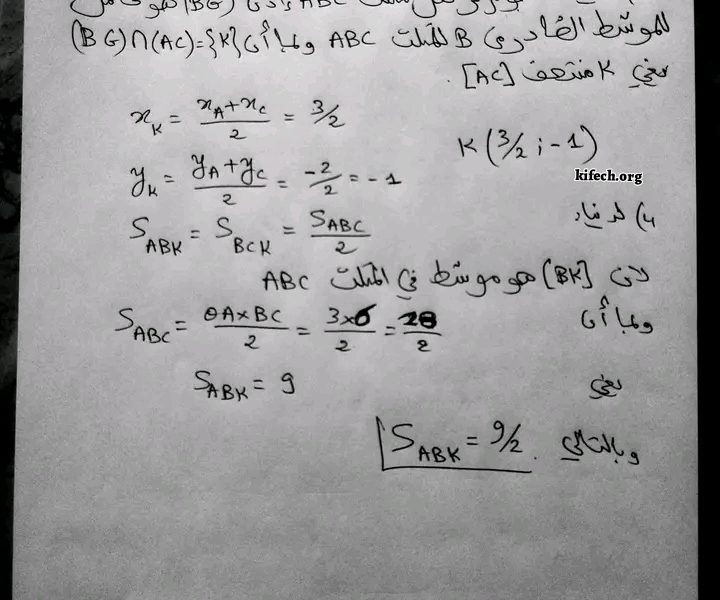 للموسط الصادر من B للمثلث ABC وبما أن (BG)∩(AC)={K}
يعني K منتصف [AC].
x_K = (x_A+x_C)/2 = 3/2
K(3/2 ; -1)
y_K = (y_A+y_C)/2 = -2/2 = -1
kifech.org
4)
S_ABK = S_BCK = S_ABC/2
لأن [BK] هو موسط في المثلث ABC
وبما أن S_ABC = (OA×BC)/2 = (3×6)/2 = 18/2
يعني S_ABK = 9
وبالتالي S_ABK = 9/2.